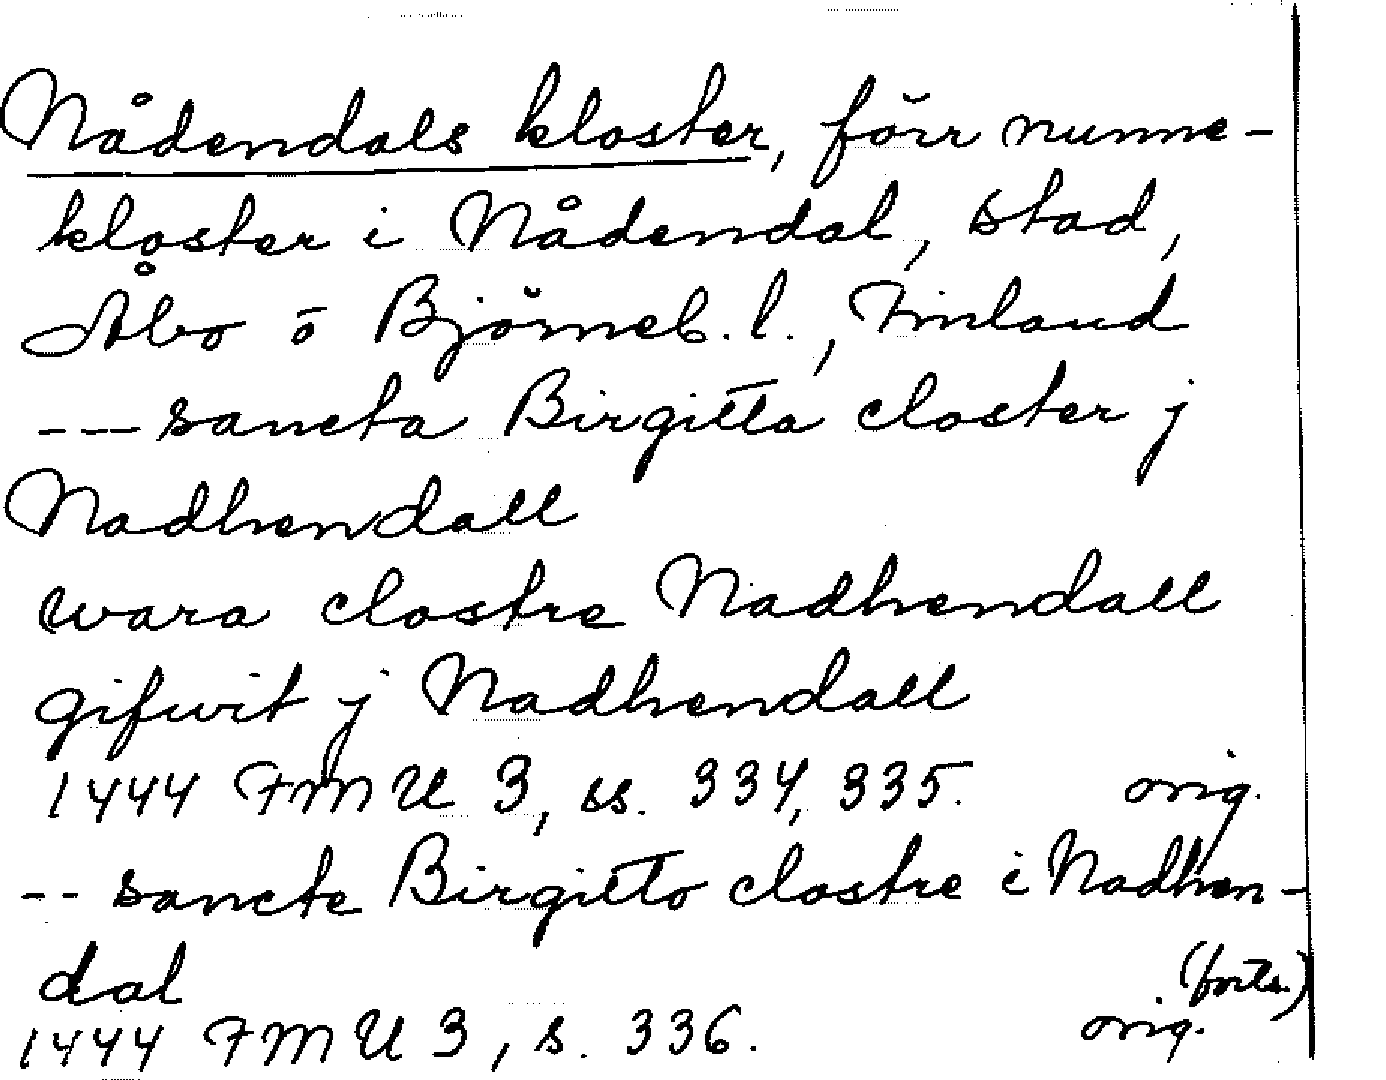 Nådendals kloster, förr nunne-
kloster i Nådendal, stad,
Åbo o Björneb. l., Finland
--- sancta Birgitta closter j
Nadhendall
wara clostre Nadhendall
gifwit j Nadhendall
1444 FMU 3, ss. 334, 335. orig.
-- sancte Birgitto clostre i Nadhen-
dal (forts.)
1444 FMU 3, s. 336. orig.